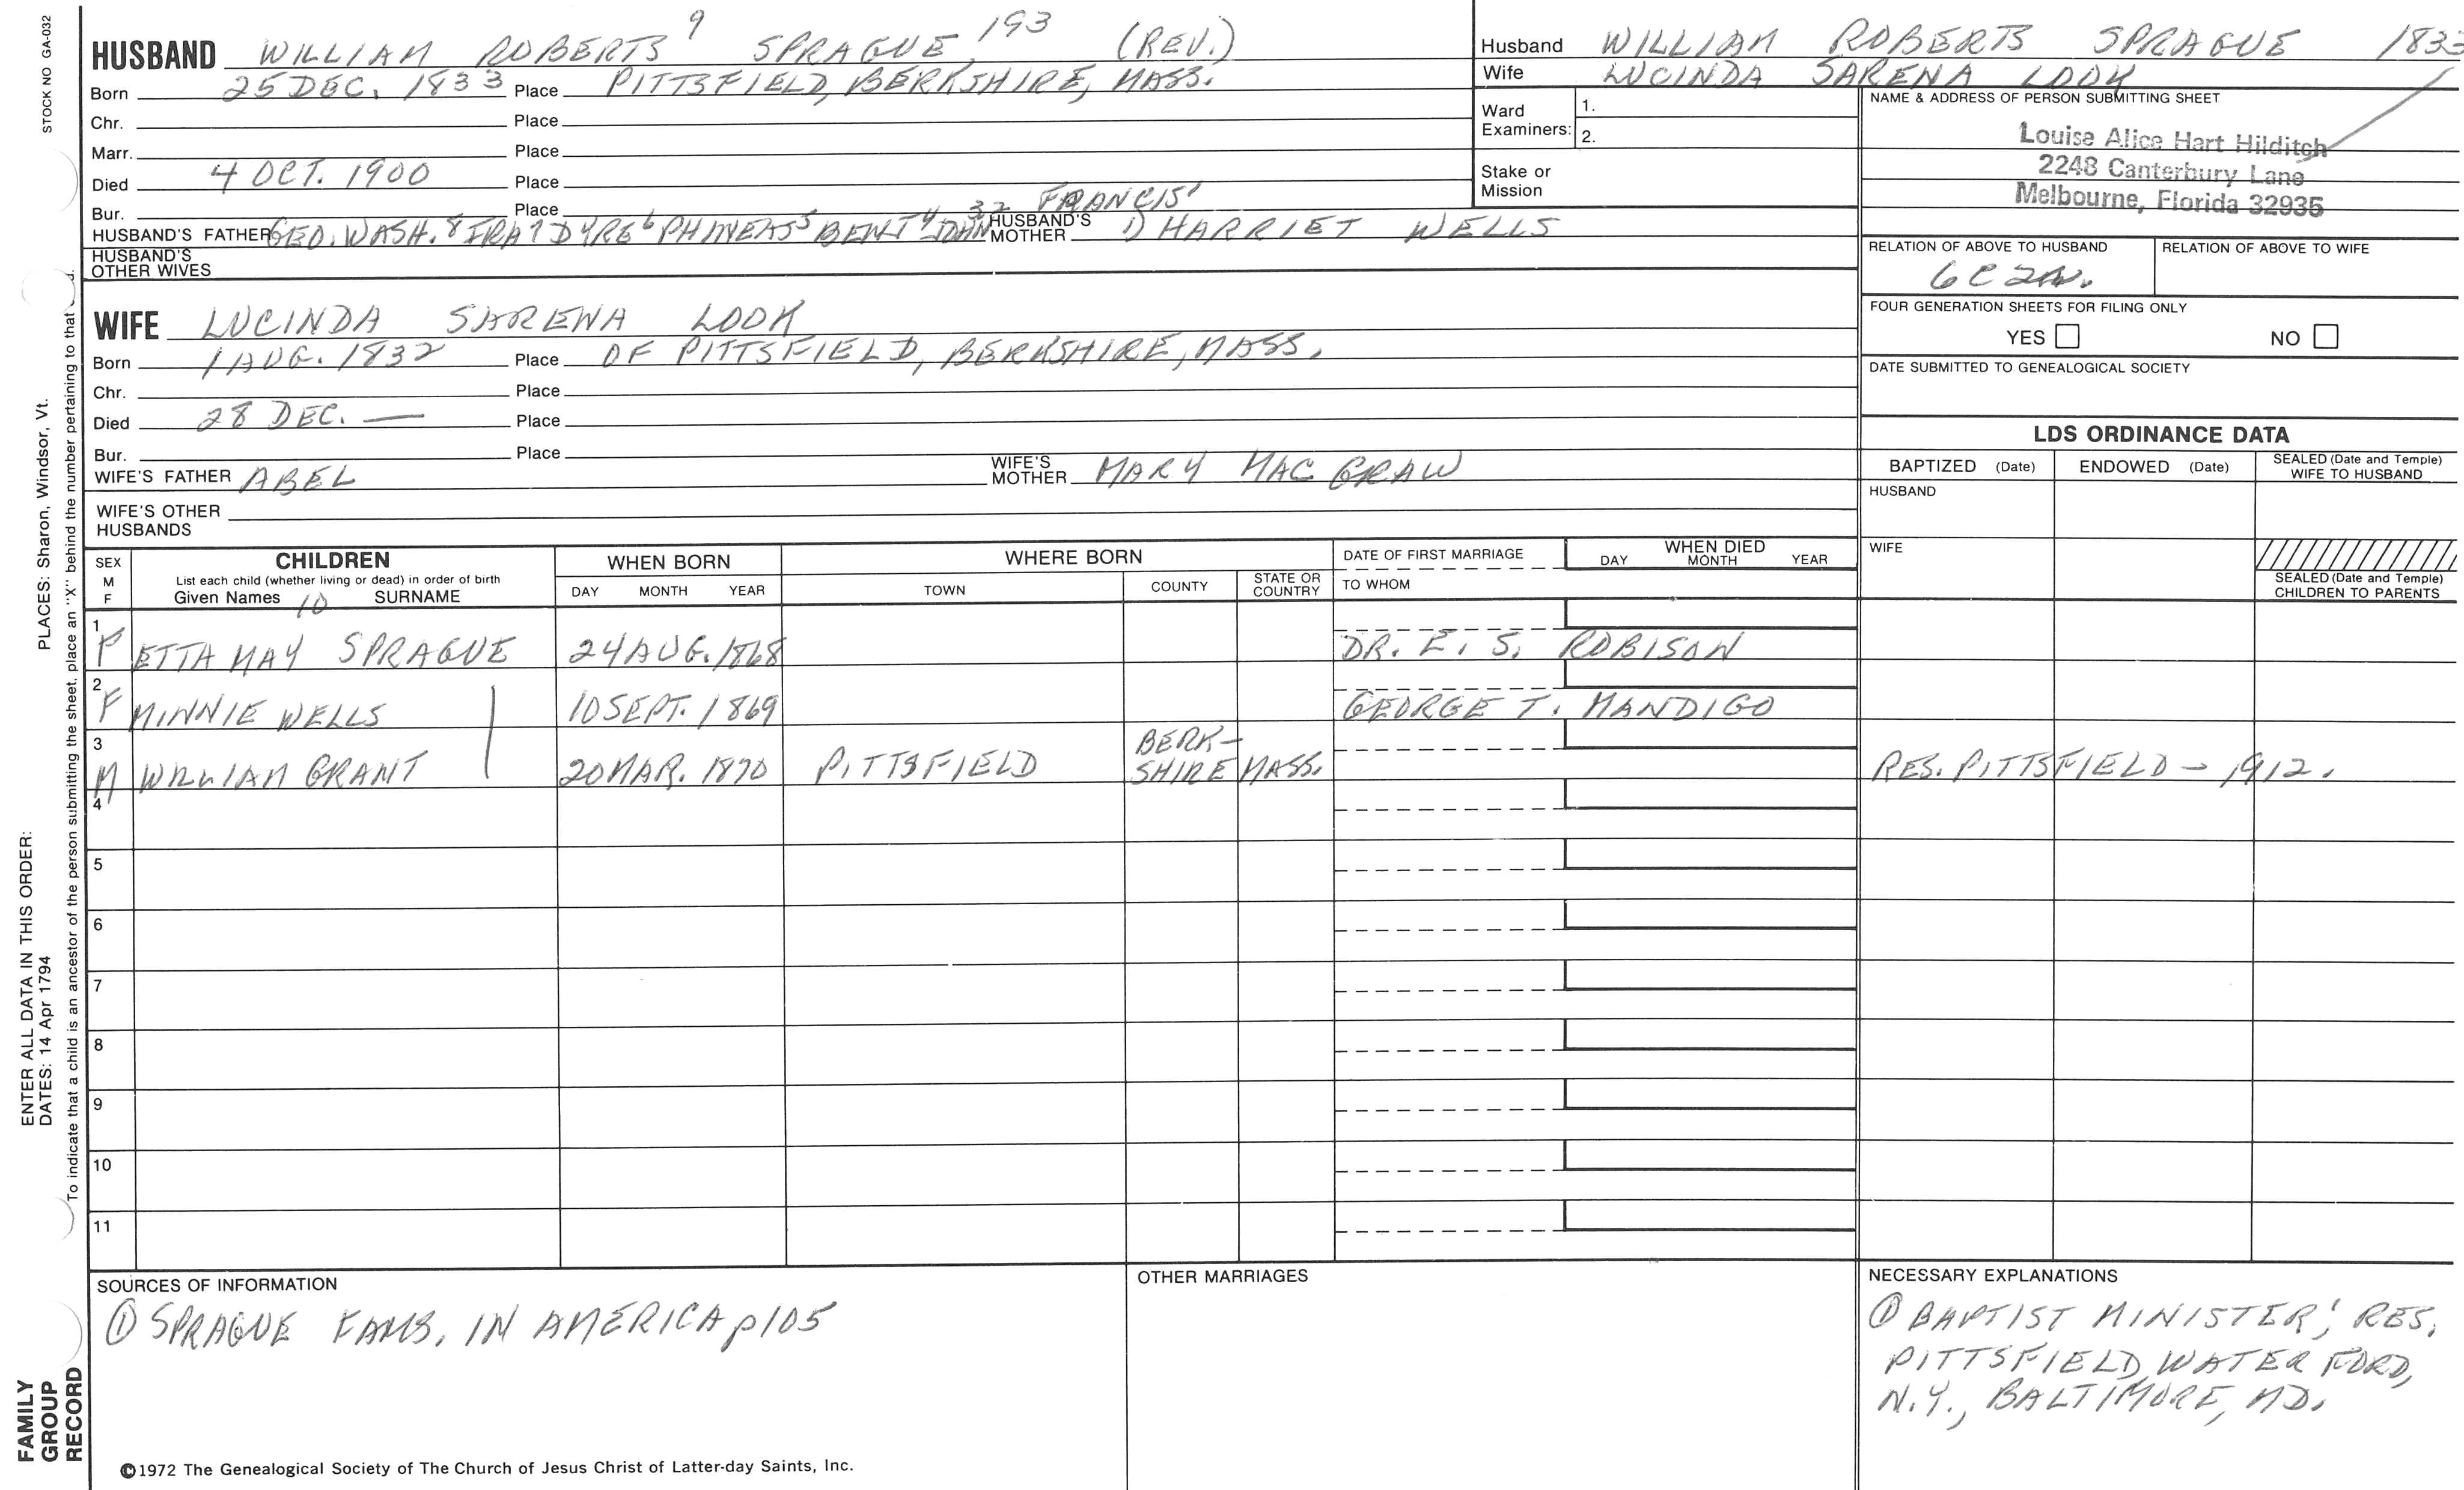 STOCK NO GA-032
HUSBAND WILLIAM ROBERTS 9 SPRAGUE 193 (REV.)
Born 25 DEC. 1833 Place PITTSFIELD, BERKSHIRE, MASS.
Chr. Place
Marr. Place
Died 4 OCT. 1900 Place
Bur. Place
HUSBAND'S FATHER GEO. WASH. 8 IRA 7 DYRE 6 PHINEAS 5 BENJ 4 JOHN 32 FRANCIS 1 HUSBAND'S MOTHER 1) HARRIET WELLS
HUSBAND'S OTHER WIVES
WIFE LUCINDA SARENA LOOK
Born 1 AUG. 1832 Place OF PITTSFIELD, BERKSHIRE, MASS.
Chr. Place
Died 28 DEC. — Place
Bur. Place
WIFE'S FATHER ABEL WIFE'S MOTHER MARY MAC GRAW
WIFE'S OTHER HUSBANDS
Husband WILLIAM ROBERTS SPRAGUE 1833
Wife LUCINDA SARENA LOOK
Ward Examiners: 1.
2.
Stake or Mission
NAME & ADDRESS OF PERSON SUBMITTING SHEET
Louise Alice Hart Hilditch
2248 Canterbury Lane
Melbourne, Florida 32935
RELATION OF ABOVE TO HUSBAND RELATION OF ABOVE TO WIFE
6C 2r.
FOUR GENERATION SHEETS FOR FILING ONLY
YES NO
DATE SUBMITTED TO GENEALOGICAL SOCIETY
LDS ORDINANCE DATA
BAPTIZED (Date) ENDOWED (Date) SEALED (Date and Temple) WIFE TO HUSBAND
HUSBAND
WIFE
SEALED (Date and Temple) CHILDREN TO PARENTS
SEX M F CHILDREN WHEN BORN WHERE BORN DATE OF FIRST MARRIAGE WHEN DIED
List each child (whether living or dead) in order of birth
Given Names 10 SURNAME DAY MONTH YEAR TOWN COUNTY STATE OR COUNTRY TO WHOM DAY MONTH YEAR
1 F ETTA MAY SPRAGUE 24 AUG. 1868 DR. E. S. ROBISON
2 F MINNIE WELLS 10 SEPT. 1869 GEORGE T. MANDIGO
3 M WILLIAM GRANT 20 MAR. 1870 PITTSFIELD BERK- SHIRE MASS. RES. PITTSFIELD - 1912.
4
5
6
7
8
9
10
11
SOURCES OF INFORMATION
① SPRAGUE FAMS. IN AMERICA p105
OTHER MARRIAGES
NECESSARY EXPLANATIONS
① BAPTIST MINISTER; RES.
PITTSFIELD, WATERFORD,
N.Y., BALTIMORE, MD.
©1972 The Genealogical Society of The Church of Jesus Christ of Latter-day Saints, Inc.
FAMILY
GROUP
RECORD
ENTER ALL DATA IN THIS ORDER:
DATES: 14 Apr 1794 PLACES: Sharon, Windsor, Vt.
To indicate that a child is an ancestor of the person submitting the sheet, place an "X" behind the number pertaining to that